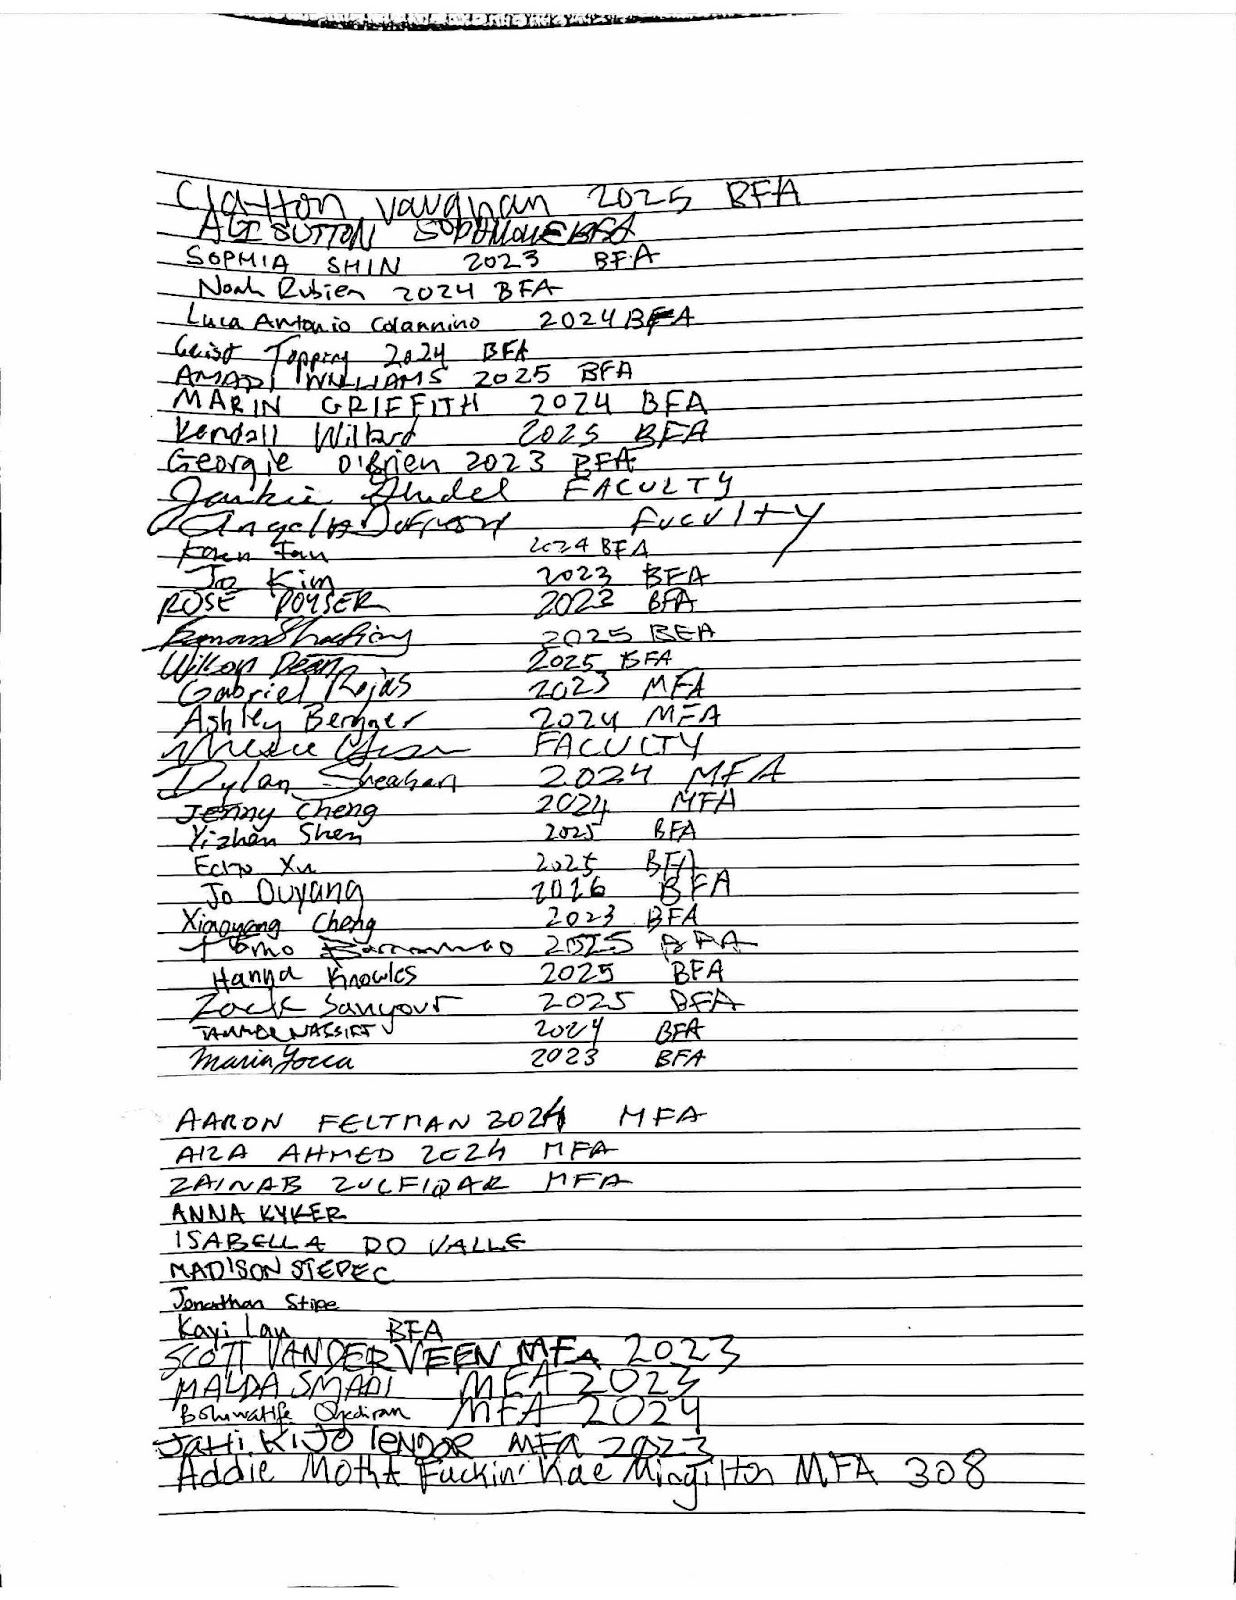 Clayton Vaughan 2025 BFA
ALI SUTTON SOPHMORE BFA
SOPHIA SHIN 2023 BFA
Noah Rubien 2024 BFA
Luca Antonio Colannino 2024 BFA
Geist Topping 2024 BFA
AMADI WILLIAMS 2025 BFA
MARIN GRIFFITH 2024 BFA
Kendall Willard 2025 BFA
Georgie O'Brien 2023 BFA
Jackie FACULTY
Angela Dufresne Faculty
2024 BFA
Jo Kim 2023 BFA
ROSE POYSER 2023 BFA
2025 BFA
Wilson Dean 2025 BFA
Gabriel Rojas 2023 MFA
Ashley Bergner 2024 MFA
FACULTY
Dylan Sheahan 2024 MFA
Jenny Cheng 2024 MFA
Yizhen Shen 2025 BFA
Echo Xu 2025 BFA
Jo Ouyang 2026 BFA
Xiaoyang Cheng 2023 BFA
2025 BFA
Hanna Knowles 2025 BFA
Zack Sanyour 2025 BFA
2024 BFA
Maria Yocca 2023 BFA
AARON FELTMAN 2024 MFA
AIZA AHMED 2024 MFA
ZAINAB ZULFIQAR MFA
ANNA KYKER
ISABELLA DO VALLE
MADISON STEPEC
Jonathan Stipe
Kayi Lau BFA
SCOTT VANDERVEEN MFA 2023
MALDA SMADI MFA 2023
MFA 2024
JAHI KIJO LENDOR MFA 2023
Addie Motha Fuckin' Kae Mingilton MFA 308